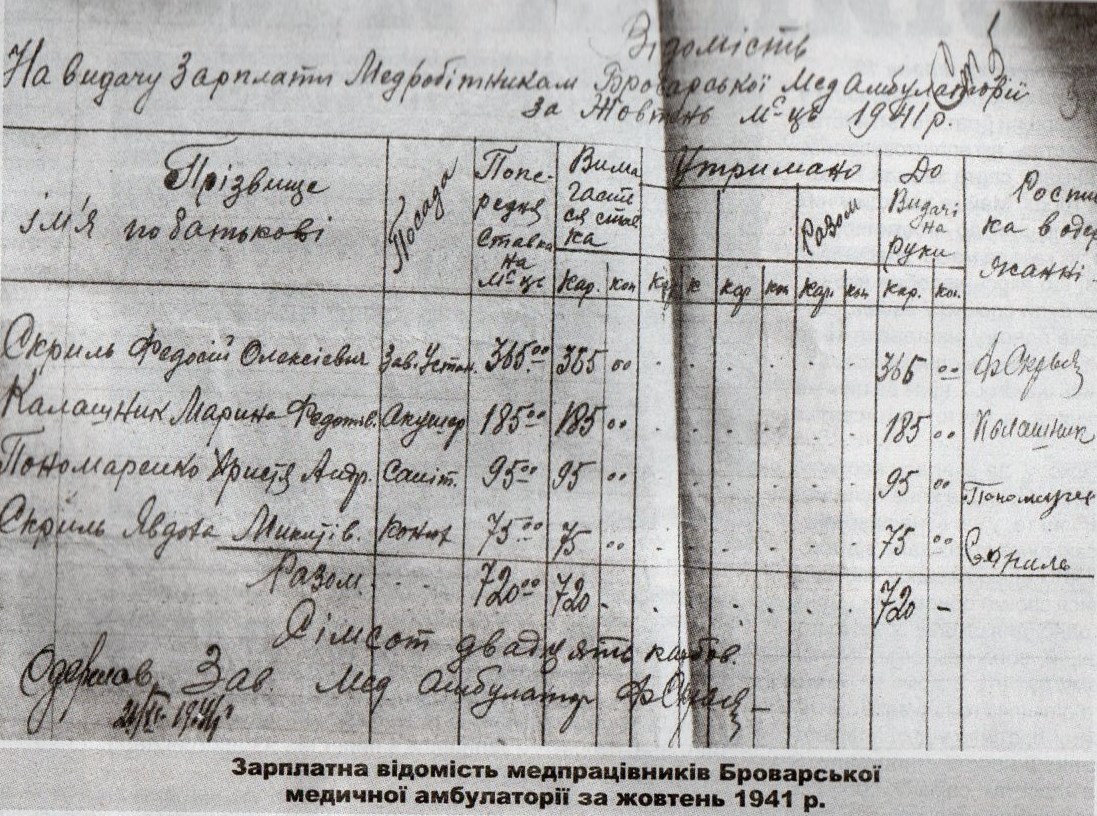 Відомість
На видачу Зарплати Медробітникам Броварської Мед Амбулаторії
За Жовтень м-ць 1941 р.
Прізвище ім'я по батькові Посада Попередня ставка на м-ць Вимагається ставка Утримано Разом До видачі на руки Росписка в одержанні
Кар. коп Кар к кар кп Кар. кп Кар. коп.
Скриль Федосій Олексієвич Зав. Устан. 365.00 365 00 365 00
Калашник Марина Федотів. Акушер 185 00 185 00 185 00 Калашник
Пономаренко Христя Андр. Саніт. 95 00 95 00 95 00
Скриль Явдоха Микитів. Конюх 75 00 75 00 75 00 Скриль
Разом. 720 00 720 - 720 -
Сімсот двадцять карбов.
Одержав Зав. Мед Амбулатор
Зарплатна відомість медпрацівників Броварської
медичної амбулаторії за жовтень 1941 р.